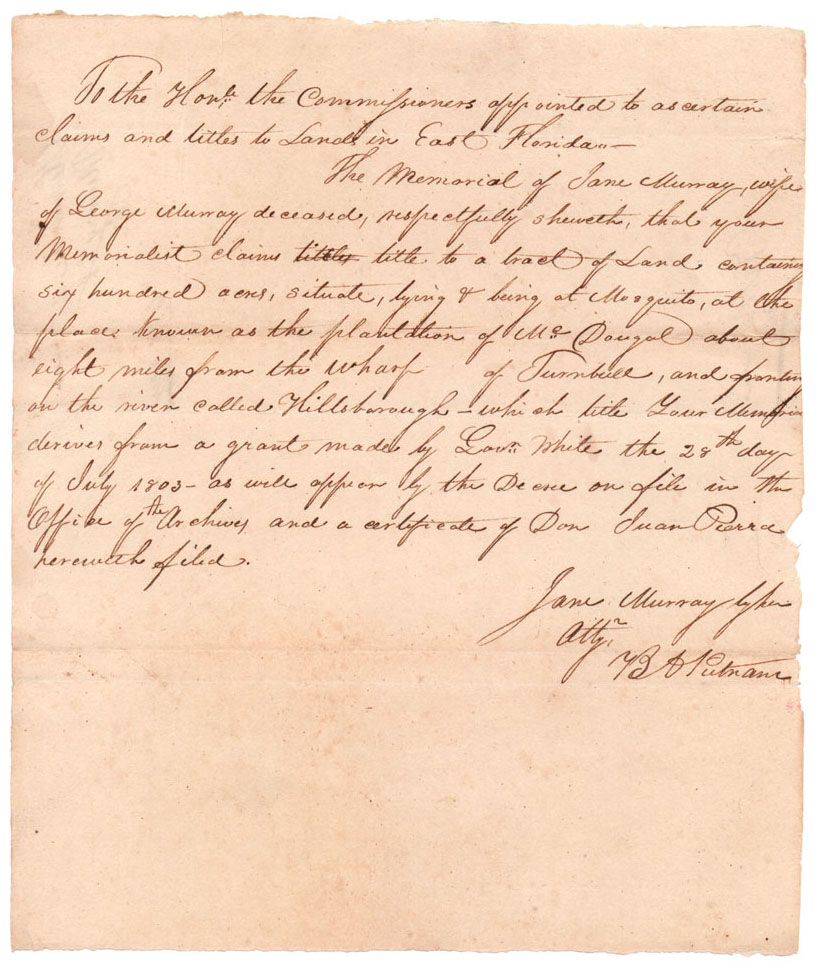 To the Honble. the Commissioners appointed to ascertain
claims and titles to Lands in East Florida.—
The Memorial of Jane Murray, wife
of George Murray deceased, respectfully sheweth, that your
Memorialist claims titles title to a tract of Land containing
six hundred acres, situate, lying & being at Mosquito, at the
place known as the plantation of Mc. Dougal about
eight miles from the wharf of Turnbull, and fronting
on the river called Hillsborough – which title Your Memorial
derives from a grant made by Govr. White the 28th day
of July 1803 – as will appear by the Decree on file in the
Office of the Archives, and a certificate of Don Juan Pierra
herewith filed.
Jane Murray by her
Atty.
B A Putnam